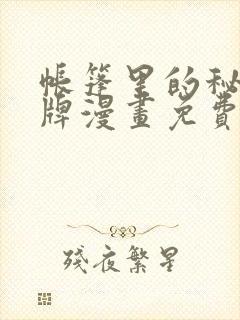 帳篷里的秘
牌漫畫免費
殘夜繁星